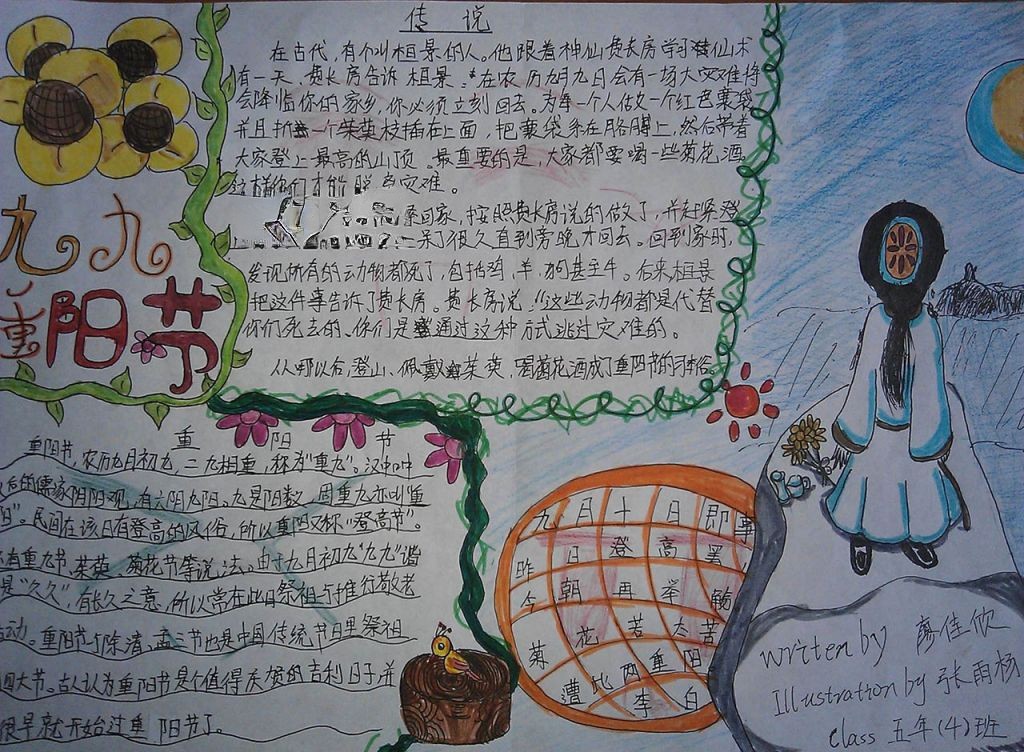 传 说
在古代,有个叫桓景的人。他跟着神仙费长房学习仙术
有一天,费长房告诉桓景:在农历九月九日会有一场大灾难将
会降临你的家乡,你必须立刻回去。为每一个人做一个红色囊袋
并且折一个茱萸枝插在上面,把囊袋系在胳膊上,然后带着
大家登上最高的山顶。最重要的是,大家都要喝一些菊花酒
这样你们才能 灾难。
回家,按照费长房说的做了,并赶紧登
呆了很久直到傍晚才回去。回到家时,
发现所有的动物都死了,包括鸡,羊,狗甚至牛。后来桓景
把这件事告诉了费长房。费长房说:“这些动物都是代替
你们死去的,你们是通过这种方式逃过灾难的。
从哪以后,登山、佩戴茱萸,喝菊花酒成了重阳节的习俗。
九九
重阳节
重 阳 节
重阳节,农历九月初九,二九相重,称为“重九”。汉中叶
以后的儒家阴阳观,有六阴九阳。九是阳数,固重九亦叫“重
阳”。民间在该日有登高的风俗,所以重阳又称“登高节”。
还有重九节、茱萸、菊花节等说法。由于九月初九“九九”谐
是“久久”,有长久之意,所以常在此日祭祖与推行敬老
活动。重阳节与除、清、盂三节也是中国传统节日里祭祖
四大节。古人认为重阳节是个值得庆贺的吉利日子,并
很早就开始过重阳节了。
九月十日即事
昨日登高罢
今朝再举觞
菊花苦太苦
遭比两重阳
李白
Written by 廖佳欣
Illustration by 张雨杨
Class 五年(4)班